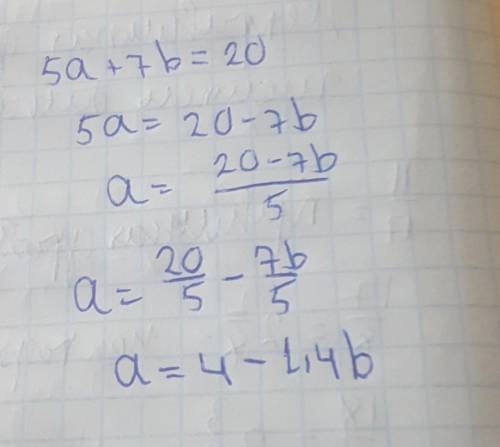 5a+7b=20
5a=20-7b
a=\frac{20-7b}{5}
a=\frac{20}{5}-\frac{7b}{5}
a=4-1,4b